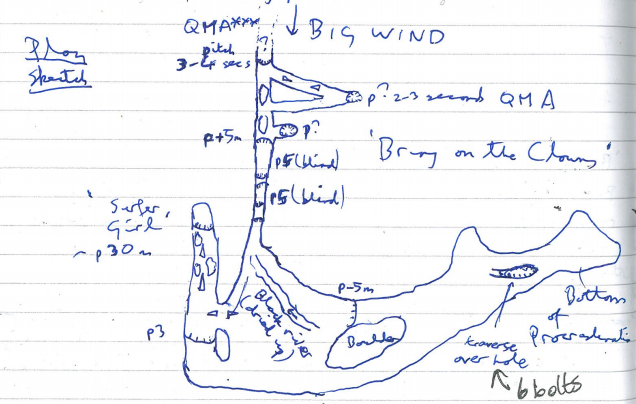 QMA***
BIG WIND
Plan
Sketch
pitch
3-4 secs
p? 2-3 second QMA
p?
p+5m
'Bring on the Clowns'
p5 (blind)
p5 (blind)
'Surfer
Girl'
~p30m
p-5m
p3
Black river
(dried up)
Boulder
traverse
over hole
Bottom
of
6 bolts